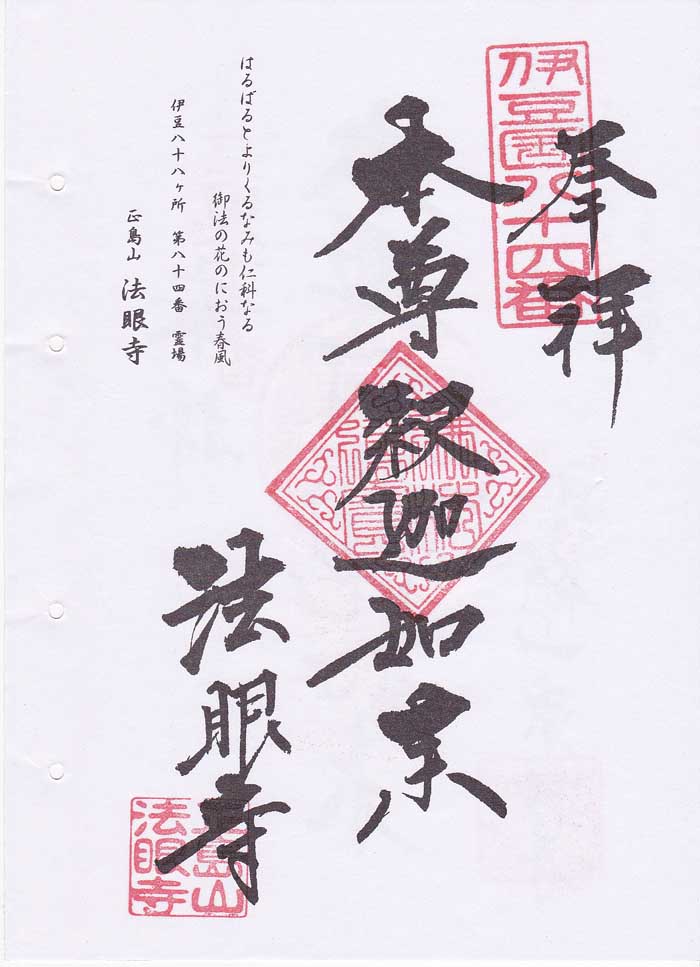 奉拝
伊豆国八十四番
本尊 釈迦如来
法眼寺
島山
法眼寺
はるばるとよりくるなみも仁科なる
御法の花のにおう春風
伊豆八十八ヶ所 第八十四番 霊場
正島山 法眼寺